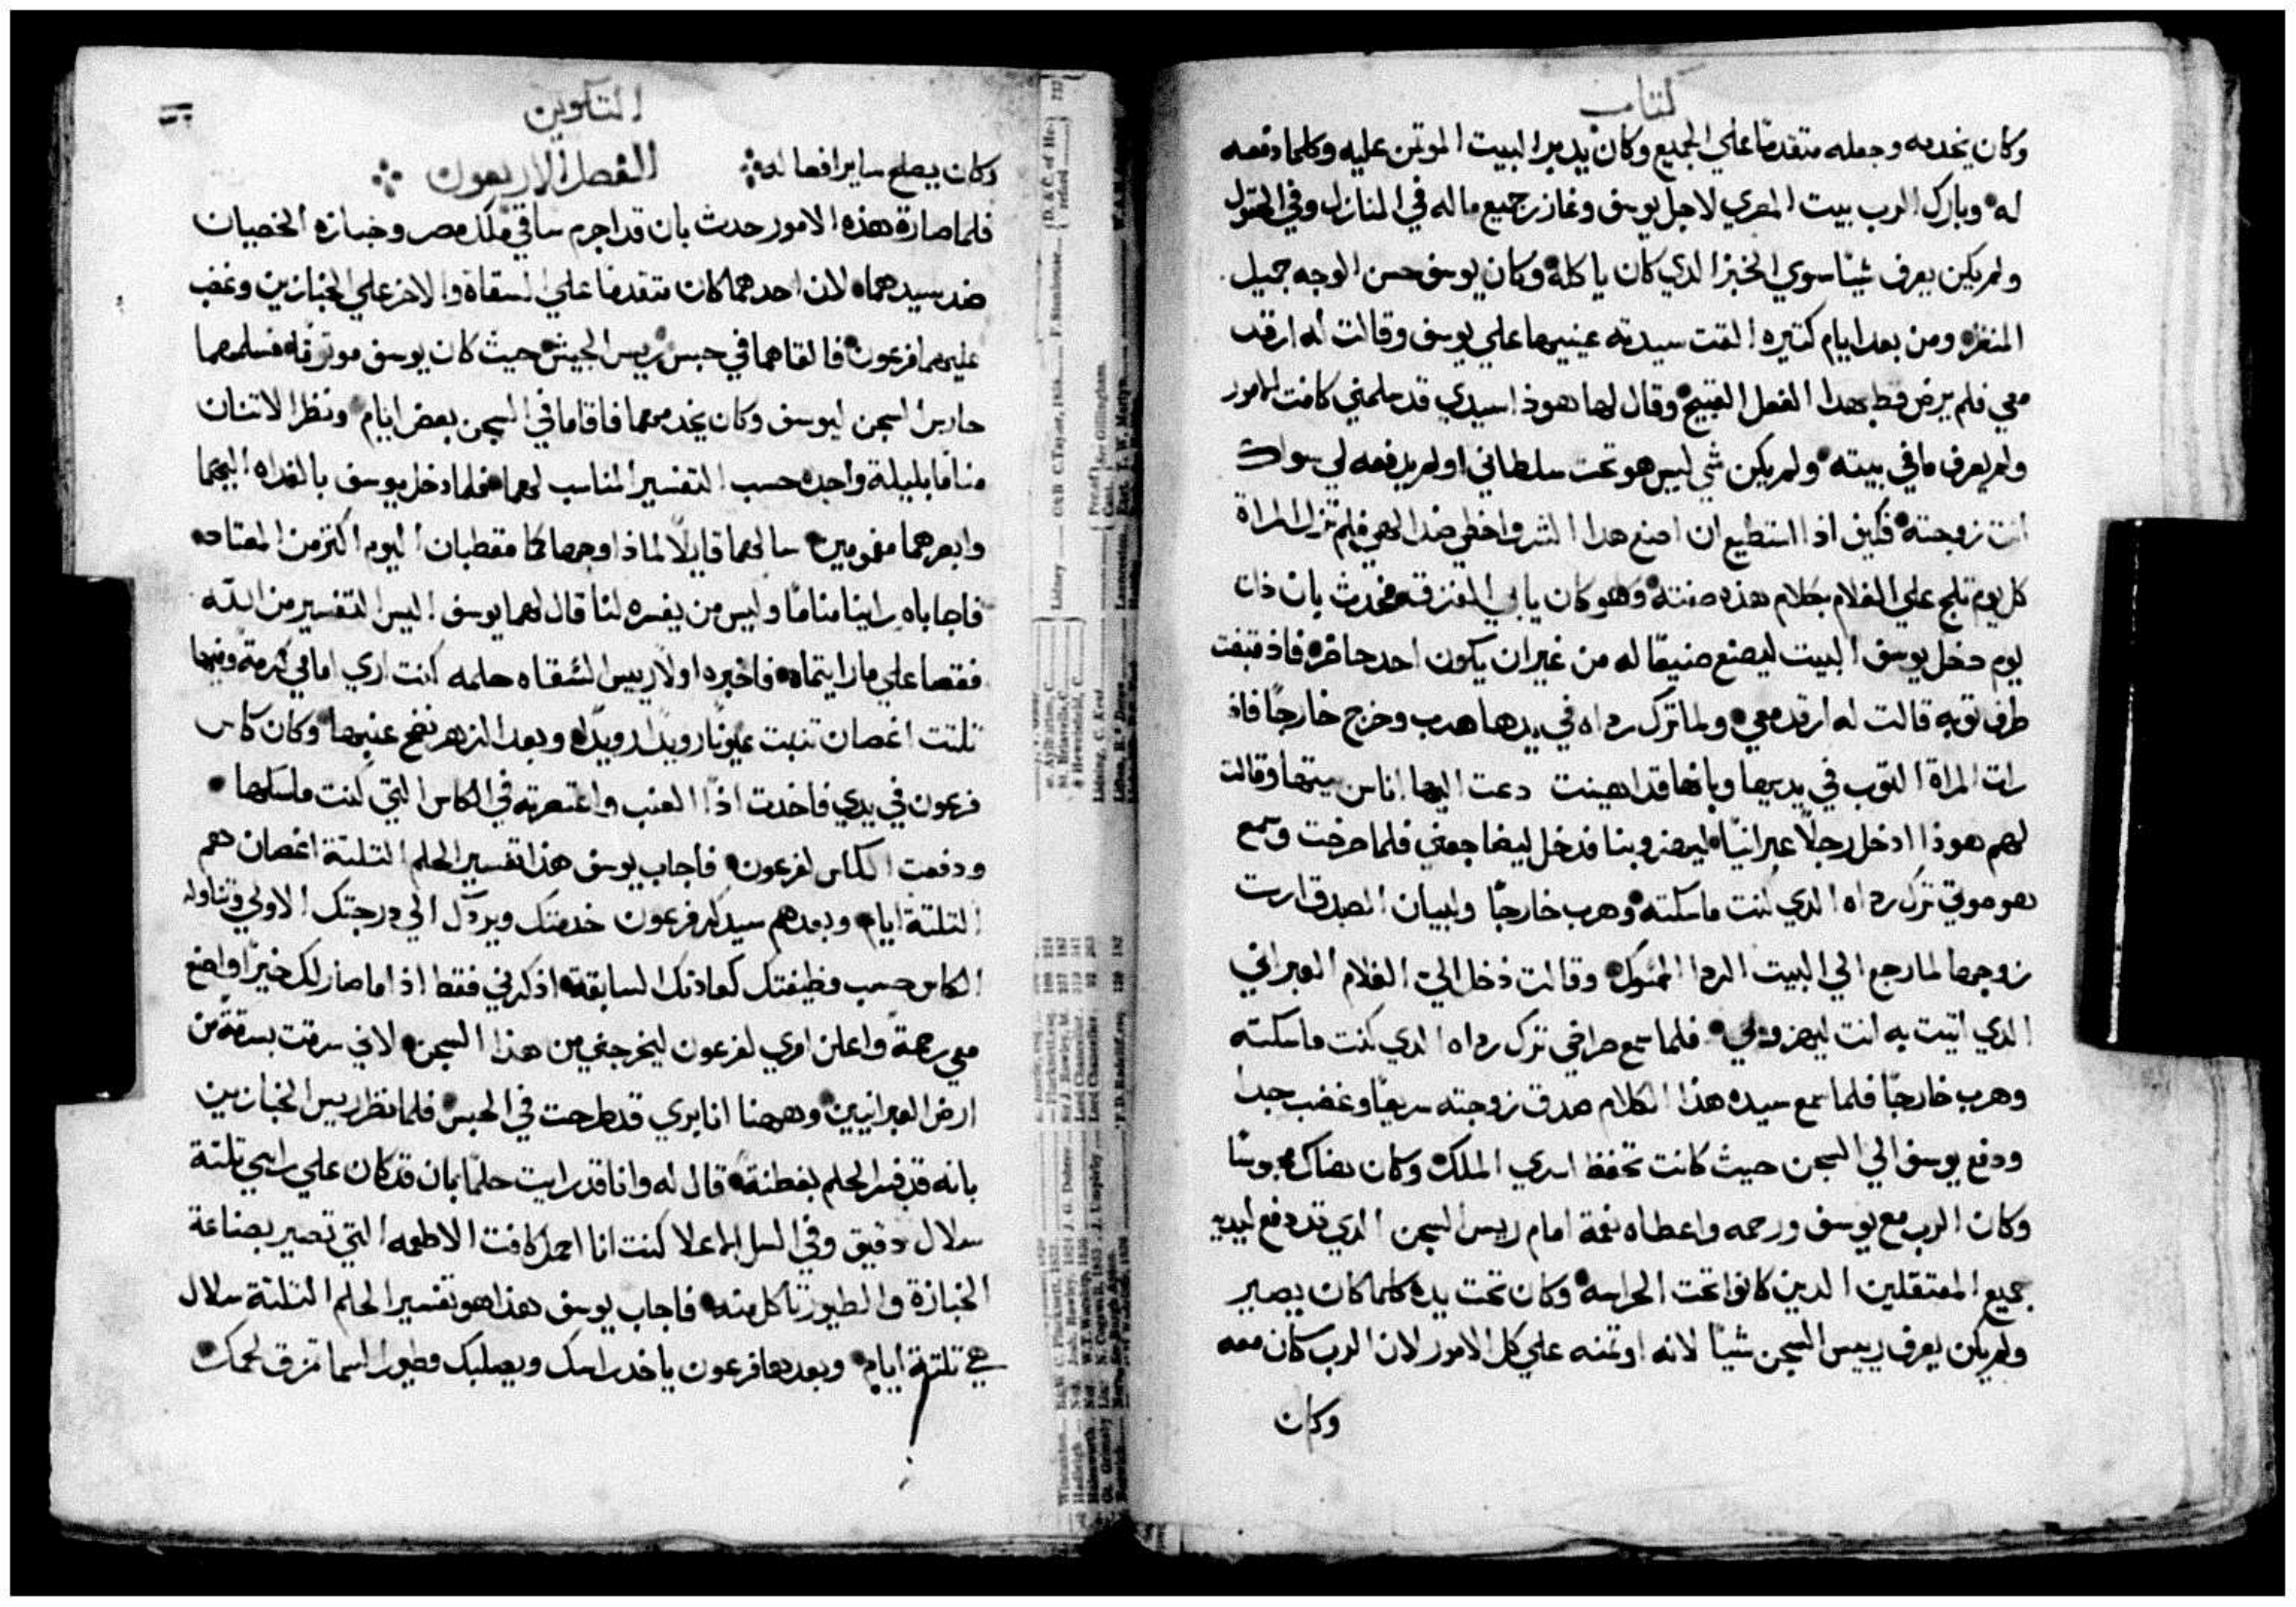 كتاب
وكان يخدمه وجعله متقدمًا علي الجميع وكان يدبر البيت الموتمن عليه وكلما دفعه
له وبارك الرب بيت المصري لاجل يوسف وغازر جميع ماله في المنازل وفي الحقول
ولم يكن يعرف شيئا سوي الخبز الدي كان ياكله وكان يوسف حسن الوجه جميل
المنظر ومن بعد ايام كتيره القت سيدته عينيها علي يوسف وقالت له ارقد
معي فلم يرض قط بهدا الفعل القبيح وقال لها هوذا سيدي قد سلمني كافت الامور
ولم يعرف ما في بيته ولم يكن شي ليس هو تحت سلطاني او لم يدفعه لي سواك
انت زوجته فكيف اذا استطيع ان اصنع هدا الشر واخطي ضد الهي فلم تزل المراة
كل يوم تلج علي الغلام بكلام هذه صفته وهو كان يابي المفزقه فحدث بان ذات
يوم دخل يوسف البيت ليصنع صنيعًا له من غير ان يكون احد حاضر فاذ قبضت
طرف توبه قالت له ارقد معي ولما ترك رداه في يدها هرب وخرج خارجًا فاذ
رات المراة التوب في يديها وبانها قد اهينت دعت اليها اناس بيتها وقالت
لهم هوذا ادخل رجلًا عبرانيًا ليهزو بنا فدخل ليضاجعني فلما صرخت وسمع
هو صوتي ترك رداه الدي كنت ماسكته وهرب خارجًا ولبيان الصدق ارت
زوجها لما رجع الي البيت الردا الممسوك وقالت دخل الي الغلام العبراني
الدي اتيت به انت ليهزو بي فلما سمع صراخي ترك رداه الدي كنت ماسكته
وهرب خارجًا فلما سمع سيده هذا الكلام صدق زوجته سريعًا وغضب جدا
ودفع يوسف الي السجن حيث كانت تحفظ اسري الملك وكان هناك محبوسًا
وكان الرب مع يوسف ورحمه واعطاه نعمة امام رييس السجن الدي قد دفع ليديه
جميع المعتقلين الدين كانوا تحت الحراسه وكان تحت يده كلما كان يصير
ولم يكن يعرف رييس السجن شيئًا لانه اوتمنه علي كل الامور لان الرب كان معه
وكان
التكوين
وكان يصلح ساير افعاله
الفصل الاربعون
فلما صارة هذه الامور حدث بان قد اجرم ساقي ملك مصر وخبازه الخصيان
ضد سيدهما لان احدهما كان متقدما علي السقاة والاخر علي الخبازين وغضب
عليهما فرعون فالقاهما في حبس رييس الجيش حيث كان يوسف موتوقًا فسلمهما
حارس السجن ليوسف وكان يخدمهما فاقاما في السجن بعض ايام ونظر الاتنان
منامًا بليلة واحده حسب التفسير المناسب لهما فلما دخل يوسف بالغداه اليهما
وابصرهما مغمومين سالهما قايلًا لماذا وجهاكما مقطبان اليوم اكتر من المعتاد
فاجاباه راينا منامًا وليس من يفسره لنا قال لهما يوسف اليس التفسير من الله
فقصا علي ما رايتماه فاخبره اولًا رييس السقاه حلمه كنت اري امامي كرمة وفيها
تلتت اغصان تنبت عيونًا رويدًا رويدًا وبعد الزهر نضج عنبها وكان كاس
فرعون في يدي فاخدت اذًا العنب واعتصرته في الكاس التي كنت ماسكها
ودفعت الكاس لفرعون فاجاب يوسف هذا تفسير الحلم التلتة اغصان هم
التلتة ايام وبعدهم سيدكر فرعون خدمتك ويردك الي درجتك الاولي وتناوله
الكاس حسب وظيفتك كعادتك السابقة اذكرني فقط اذا ما صار لك خيرًا واصنع
معي رحمةً واعلن امري لفرعون ليخرجني من هذا السجن لاني سرقت بسرقة من
ارض العبرانيين وههنا انا بري قد طرحت في الحبس فلما نظر رييس الخبازين
بانه قد فسر الحلم بفطنة قال له وانا قد رايت حلمًا بان قد كان علي راسي تلتة
سلال دقيق وفي السل الاعلا كنت انا احمل كافت الاطعمه التي تصير بصناعة
الخبازة والطيور تاكل منه فاجاب يوسف هذا هو تفسير الحلم التلتة سلال
هي تلتة ايام وبعدها فرعون ياخد راسك ويصلبك وطيور السما تمزق لحمك